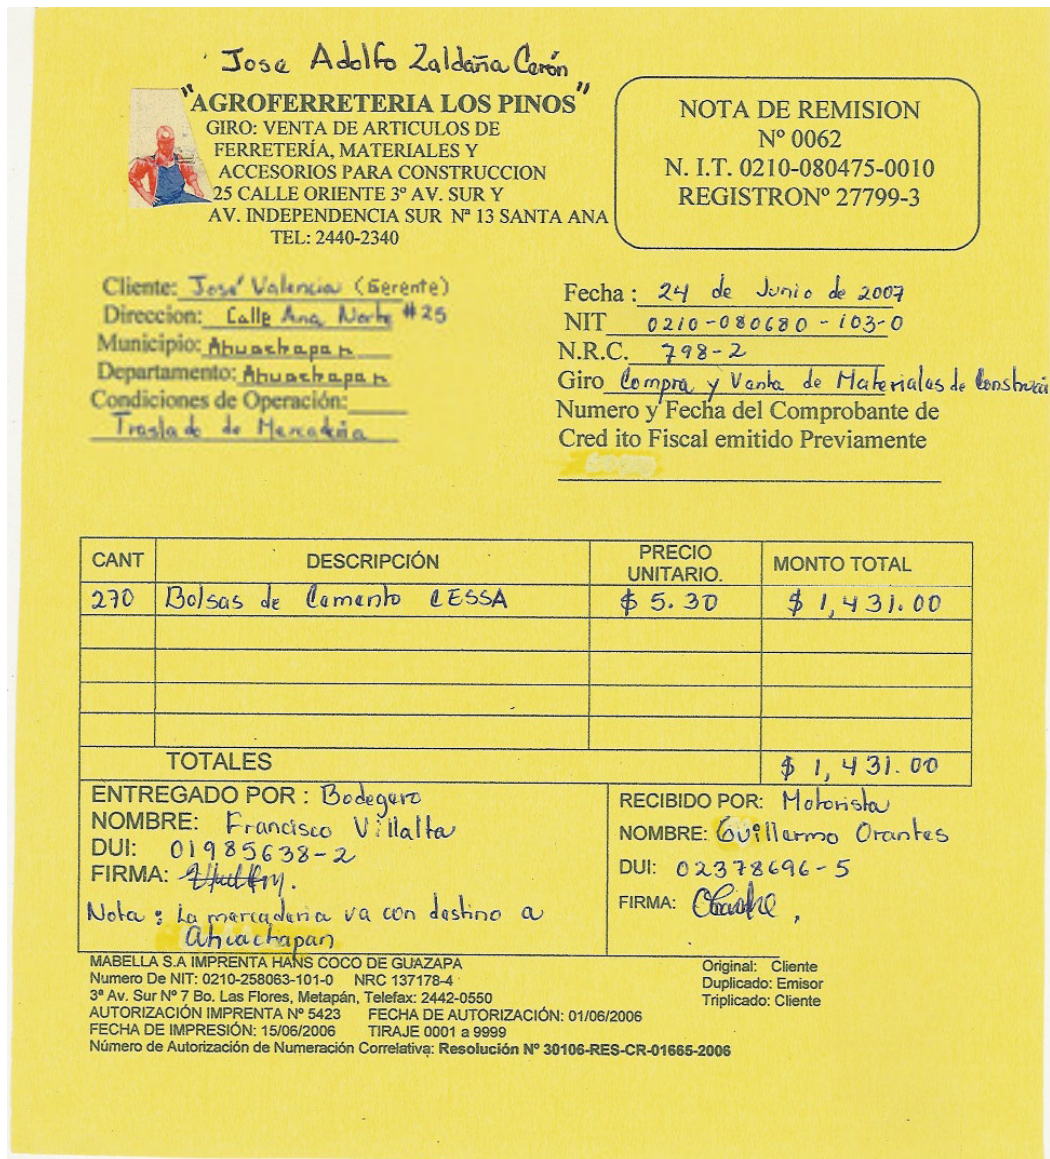 Jose Adolfo Zaldaña Cerón
"AGROFERRETERIA LOS PINOS"
GIRO: VENTA DE ARTICULOS DE
FERRETERÍA, MATERIALES Y
ACCESORIOS PARA CONSTRUCCION
25 CALLE ORIENTE 3º AV. SUR Y
AV. INDEPENDENCIA SUR Nª 13 SANTA ANA
TEL: 2440-2340
NOTA DE REMISION
Nº 0062
N. I.T. 0210-080475-0010
REGISTRONº 27799-3
Cliente: José Valencia (Gerente)
Direccion: Calle Ana Norte #25
Municipio: Ahuachapan
Departamento: Ahuachapan
Condiciones de Operación:
Traslado de Mercadería
Fecha : 24 de Junio de 2007
NIT 0210-080680-103-0
N.R.C. 798-2
Giro Compra y Venta de Materiales de Construcci
Numero y Fecha del Comprobante de
Cred ito Fiscal emitido Previamente
CANT DESCRIPCIÓN PRECIO UNITARIO. MONTO TOTAL
270 Bolsas de Cemento CESSA $ 5.30 $ 1,431.00
TOTALES $ 1,431.00
ENTREGADO POR : Bodegero
NOMBRE: Francisco Villalta
DUI: 01985638-2
FIRMA:
Nota : La mercaderia va con destino a
Ahuachapan
RECIBIDO POR: Motorista
NOMBRE: Guillermo Orantes
DUI: 02378696-5
FIRMA:
MABELLA S.A IMPRENTA HANS COCO DE GUAZAPA
Numero De NIT: 0210-258063-101-0 NRC 137178-4
3ª Av. Sur Nº 7 Bo. Las Flores, Metapán, Telefax: 2442-0550
AUTORIZACIÓN IMPRENTA Nº 5423 FECHA DE AUTORIZACIÓN: 01/06/2006
FECHA DE IMPRESIÓN: 15/06/2006 TIRAJE 0001 a 9999
Número de Autorización de Numeración Correlativa: Resolución Nº 30106-RES-CR-01665-2006
Original: Cliente
Duplicado: Emisor
Triplicado: Cliente